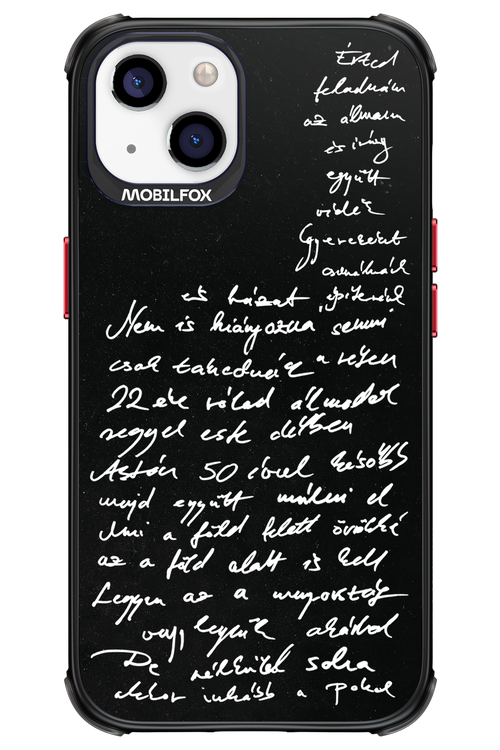 MOBILFOX
Érted
feladnám
az álmom
és irány
együtt
vidék
Gyerekeket
csinálnánk
és házat építenénk
Nem is hiányozna semmi
csak takednánk a réten
22 éve rólad álmodok
reggel este délben
Aztán 50 évvel később
majd együtt múlni el
Ami a föld felett örökké
az a föld alatt is kell
Legyen az a mennyország
vagy legyünk akárhol
De nélküled soha
akkor inkább a pokol